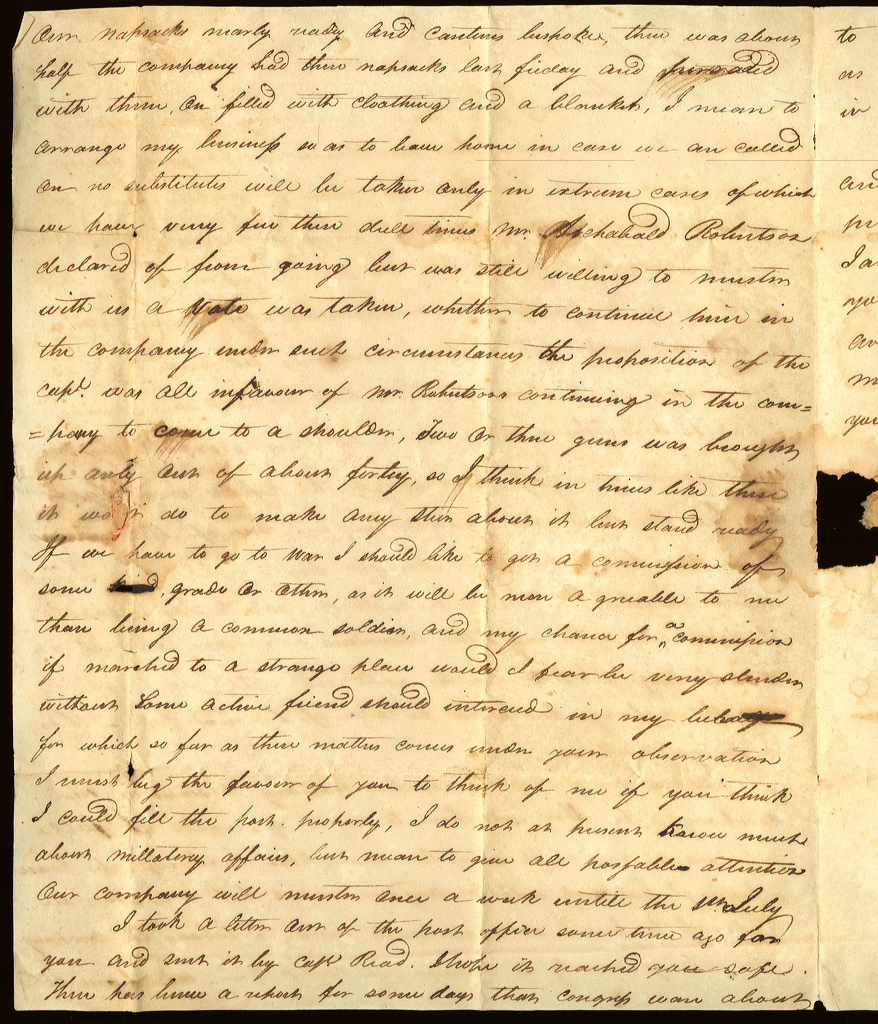 Our napsacks nearly ready and canteens bespoke, there was about
half the company had there napsacks last friday and paraded
with them, on filled with cloathing and a blanket, I mean to
arrange my business so as to leave home in case we are called
on no substitutes will be taken only in extreem cases of which
we have very few these dull times Mr. Archabald Robertson
declared of from going but was still willing to muster
with us a Vote was taken, whether to continue him in
the company under such circumstances the proposition of the
capt. was all in favour of Mr. Robertsons continuing in the com=
=pany to come to a shoulder, Two or three guns was brought
up only out of about forty, so I think in times like these
it wo't do to make any stir about it but stand ready
If we have to go to war I should like to get a commission of
some grade or other, as it will be more a greable to me
than being a common soldier, and my chance for a commission
if marched to a strange place would I fear be very slender
without some active friend should interceed in my behay
for which so far as these matters comes under your observation
I must beg the favour of you to think of me if you think
I could fill the post properly, I do not at present know much
about millatery affairs, but mean to give all possable attention
Our company will muster once a week untill the 1st July
I took a letter out of the post office some time ago for
you and sent it by capt Read. I hope it reached you safe.
There has been a report for some days that congress ware about
to
as
in
and
I a
yo
m
you